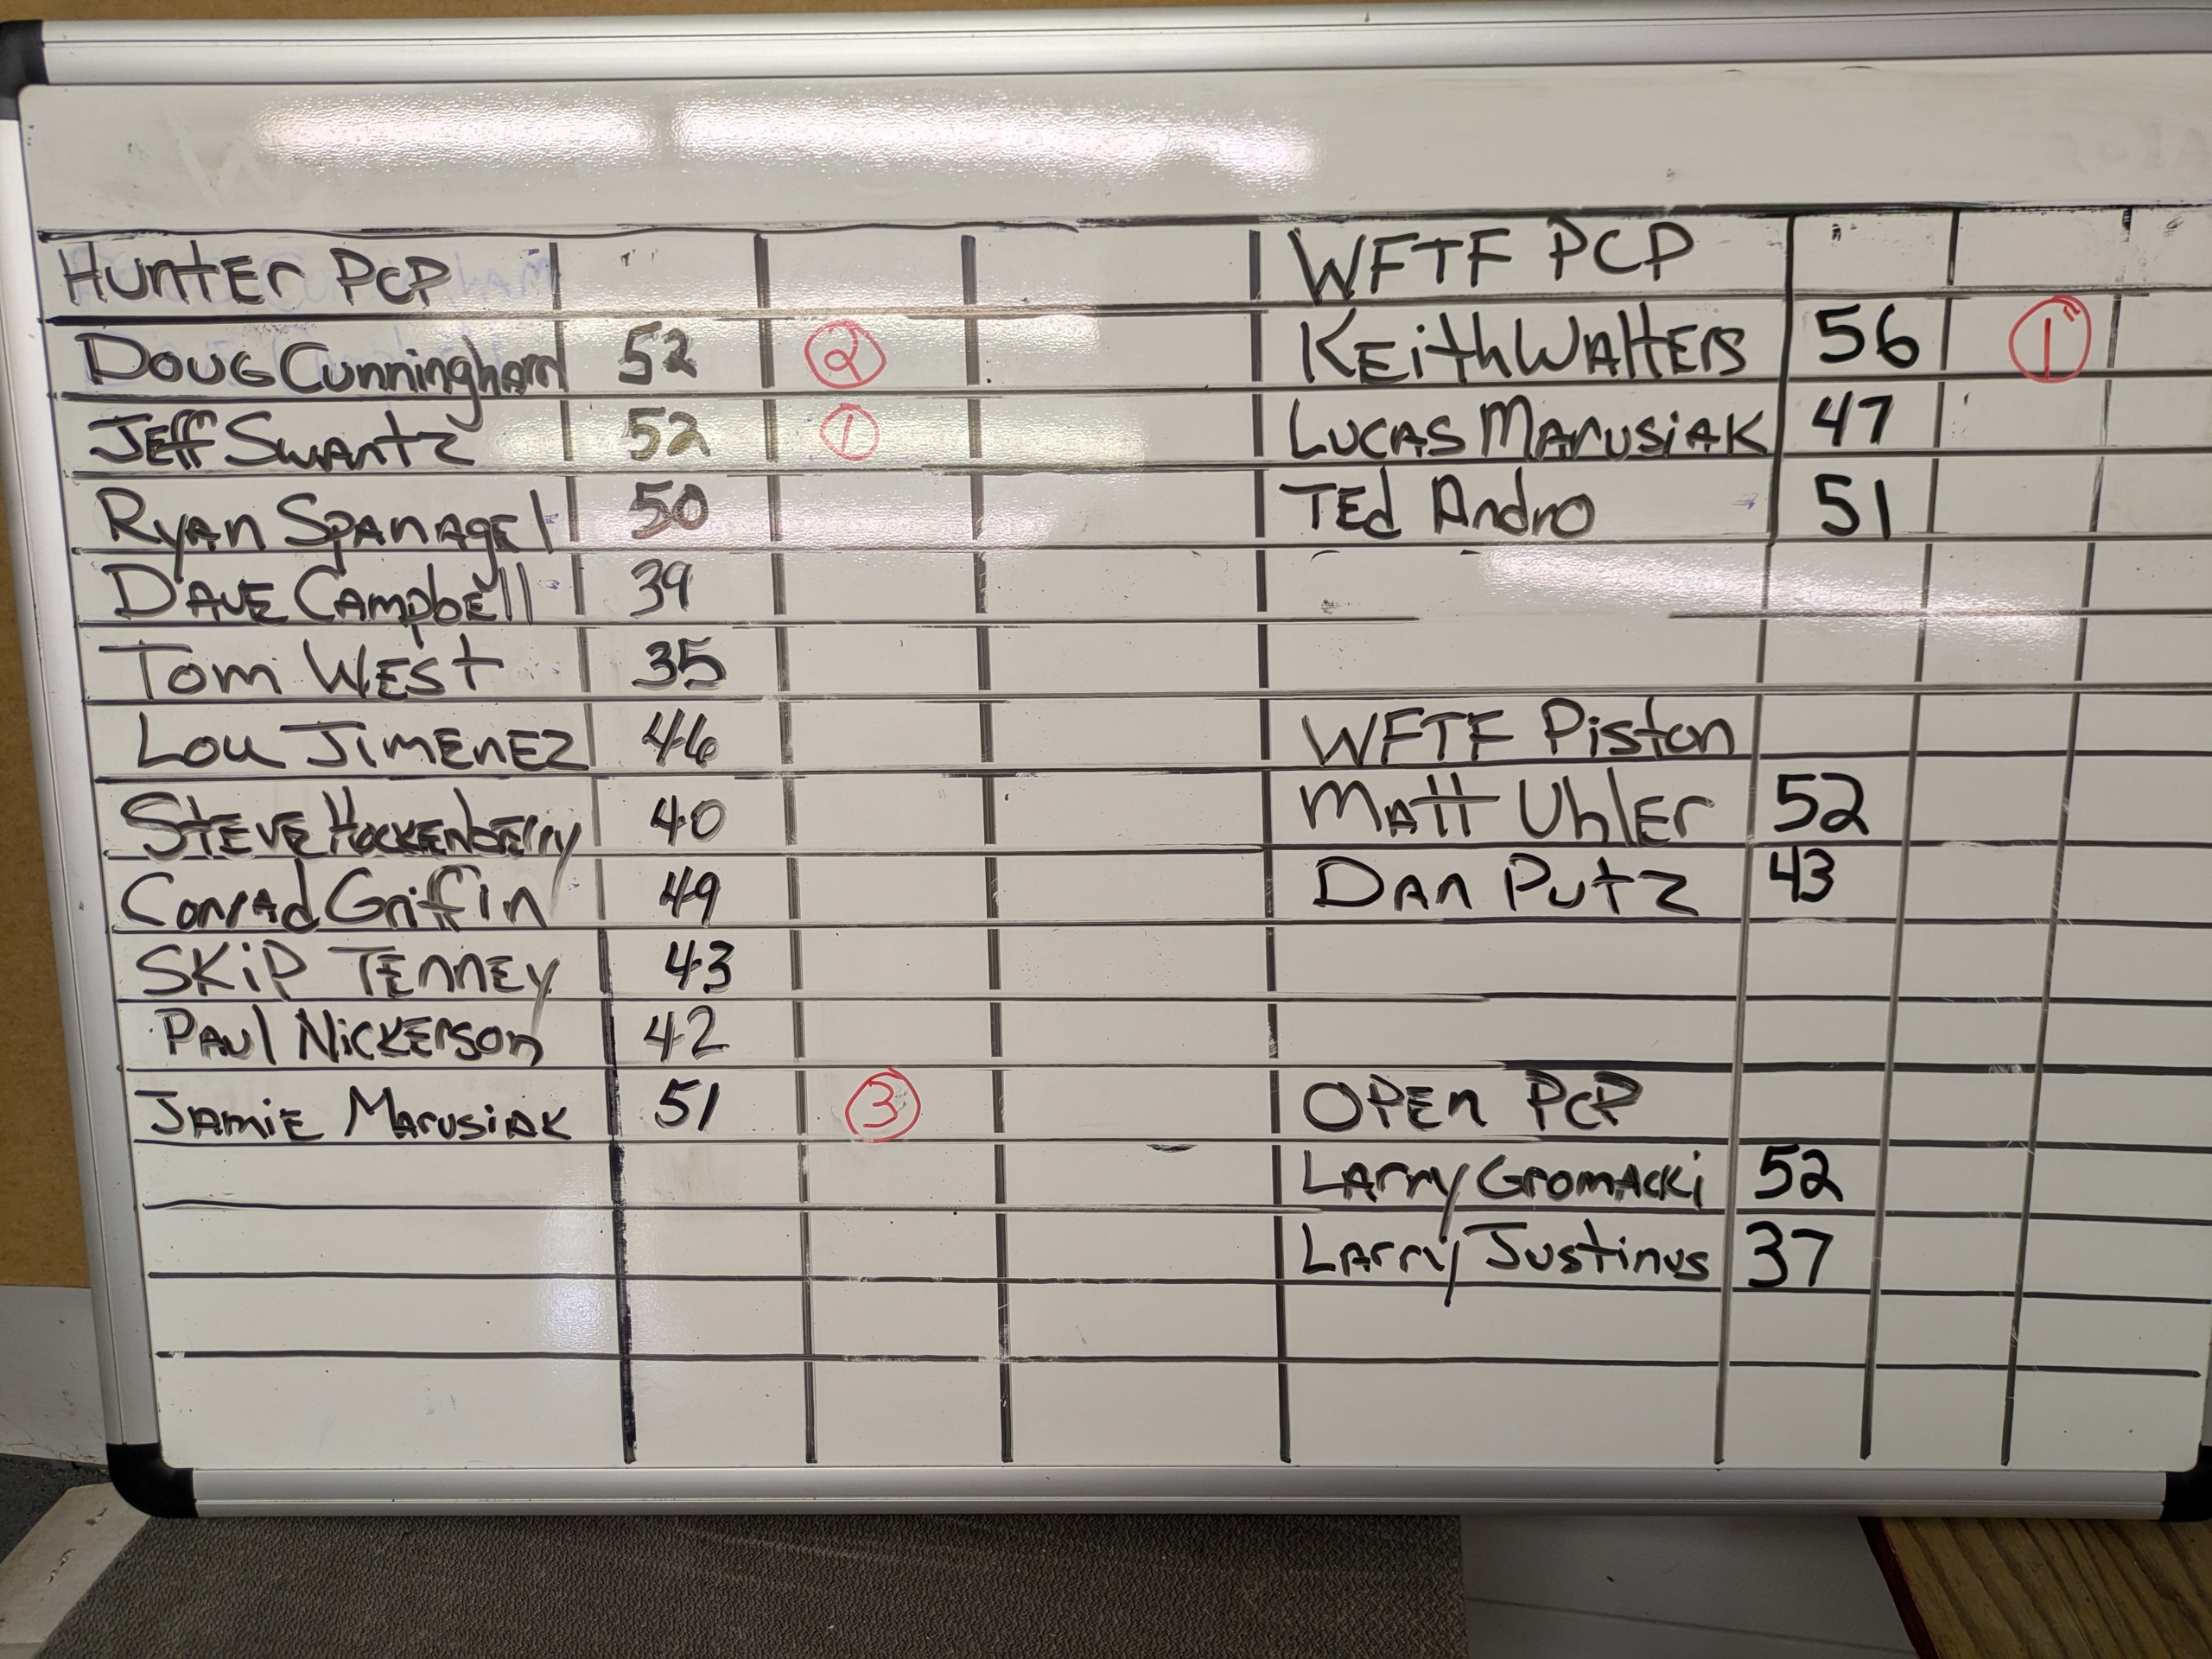 Hunter PCP
Doug Cunningham 52 2
Jeff Swantz 52 1
Ryan Spanagel 50
Dave Campbell 39
Tom West 35
Lou Jimenez 46
Steve Hockenberry 40
Conrad Griffin 49
Skip Tenney 43
Paul Nickerson 42
Jamie Marusiak 51 3
WFTF PCP
Keith Walters 56 1
Lucas Marusiak 47
Ted Andro 51
WFTF Piston
Matt Uhler 52
Dan Putz 43
Open PCP
Larry Gromacki 52
Larry Justinus 37